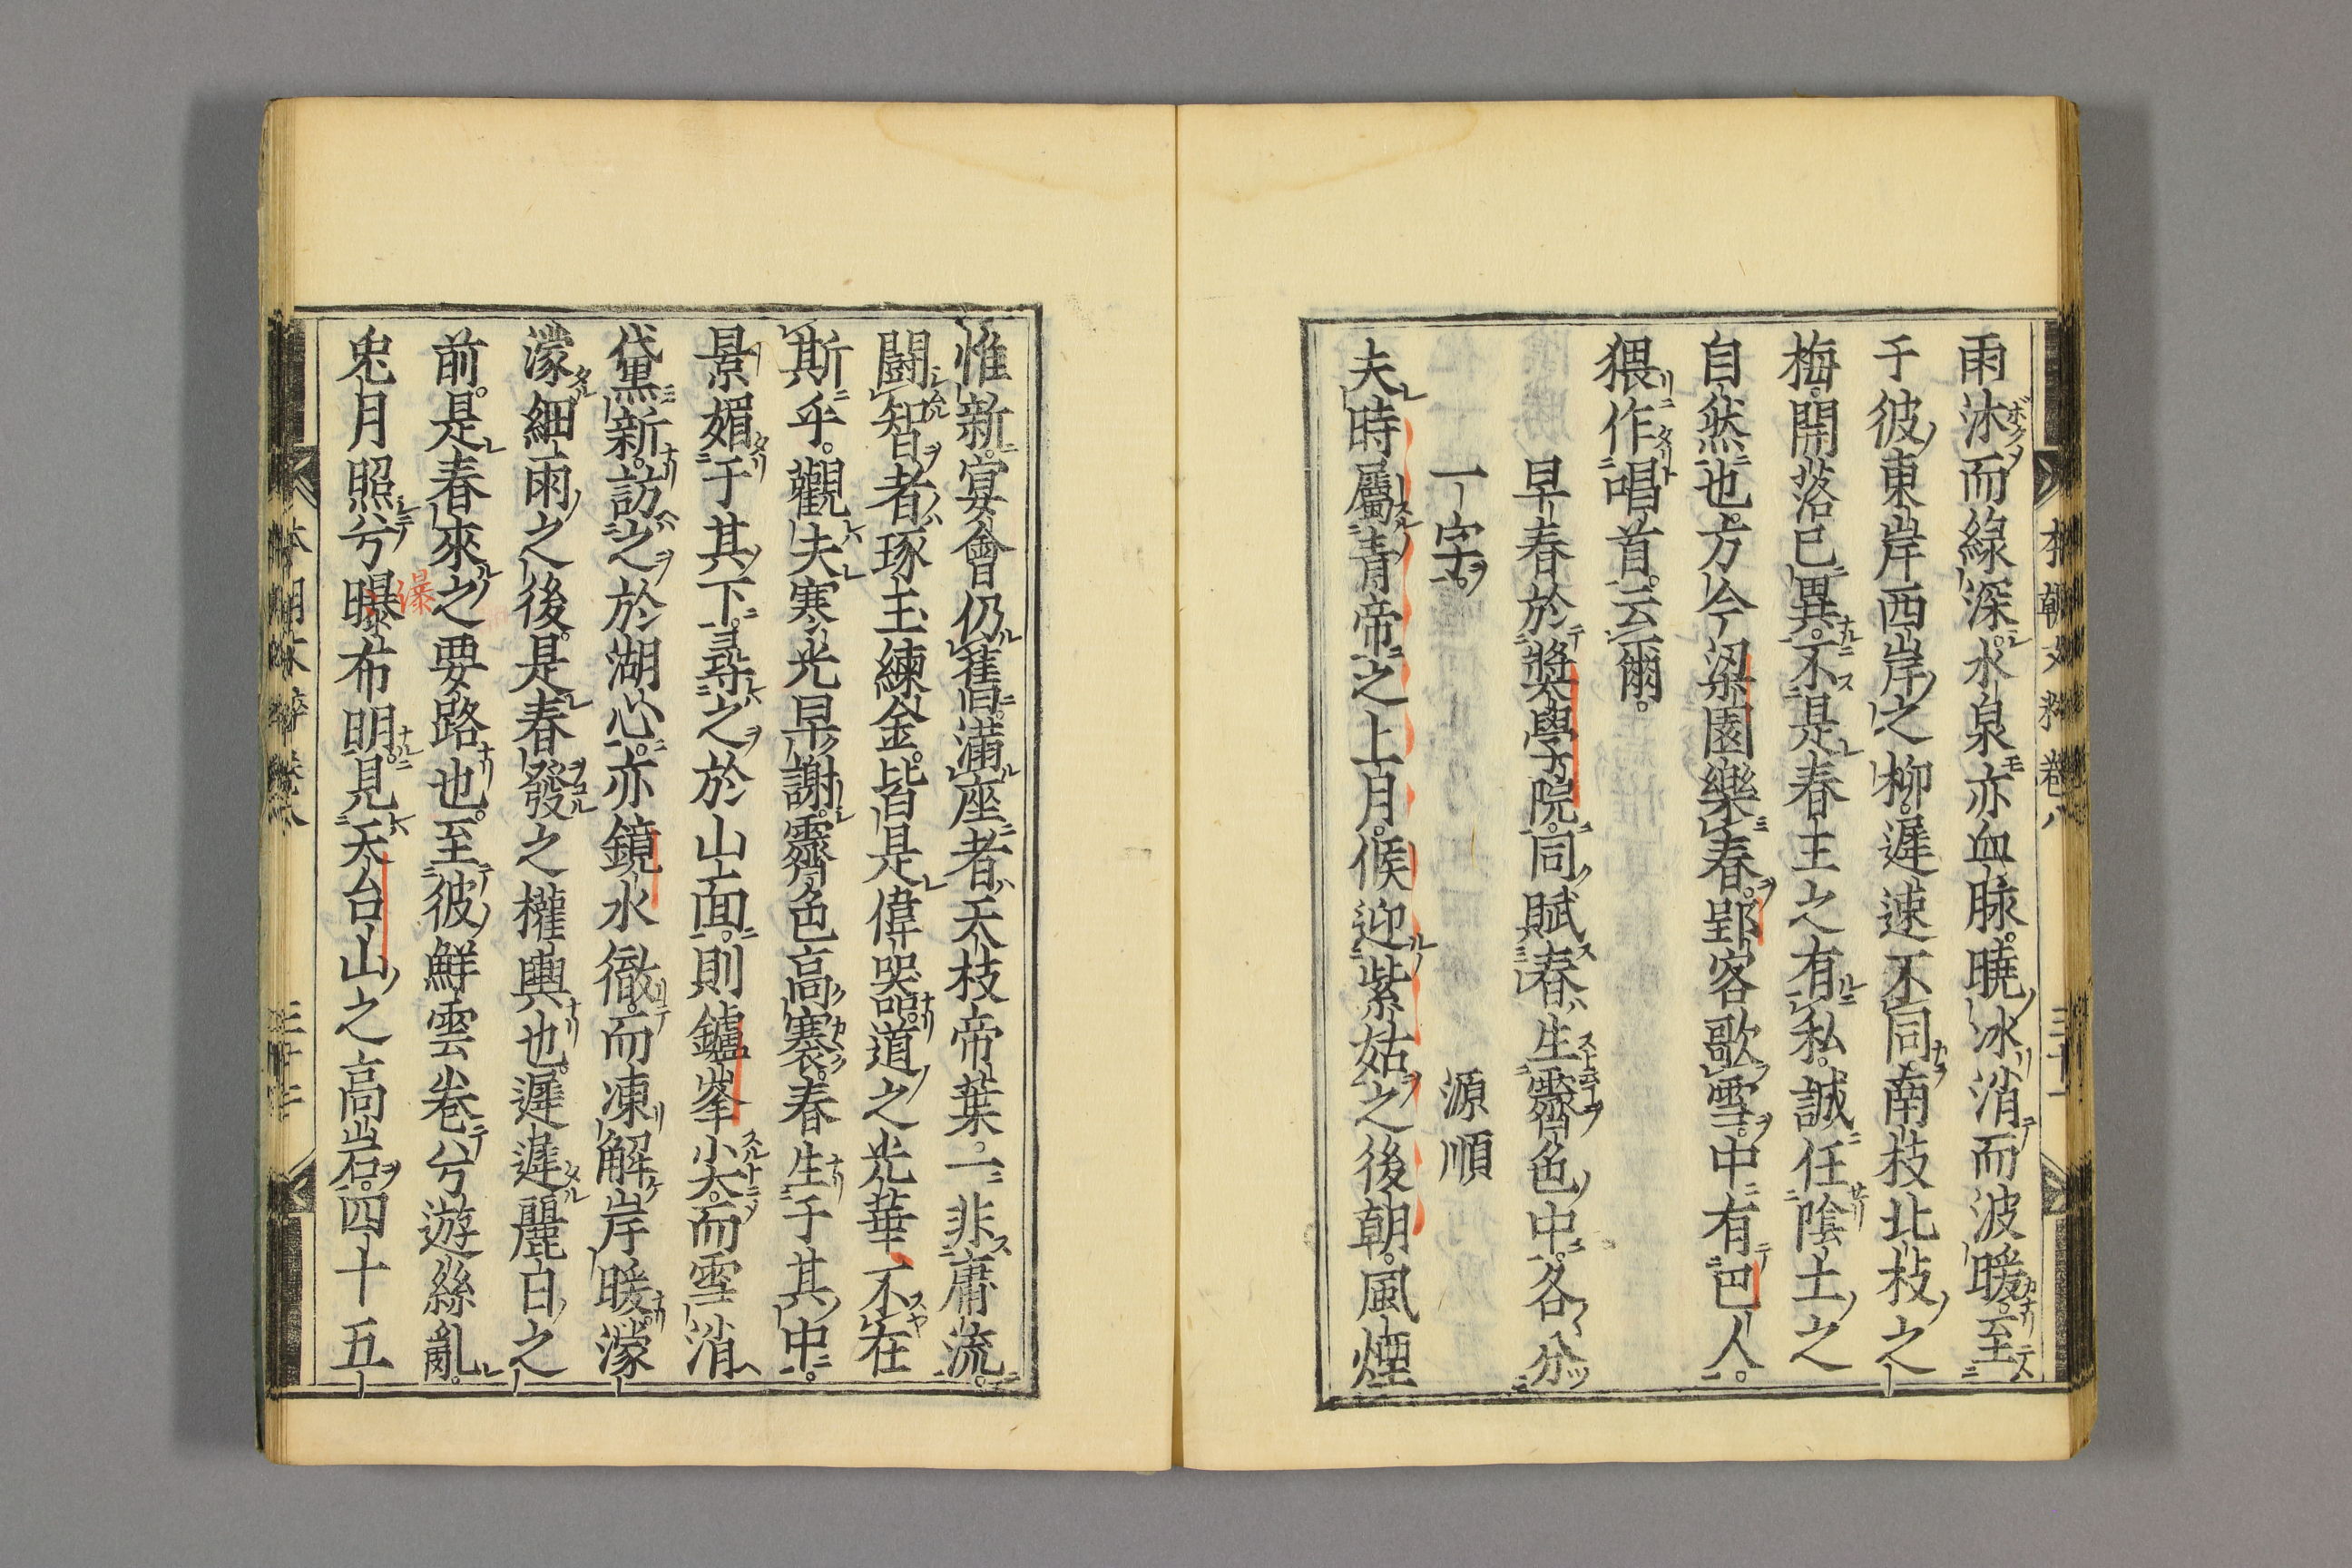 雨沐而綠深水泉亦血脉曉氷消而波暖至
于彼東岸西岸之柳遲速不同南枝北枝之
梅開落已異不是春主之有私誠任陰土之
自然也方今梁園樂春郢客歌雪中有巴人
猥作唱首云爾
早春於奬學院同賦春生霽色中各分
一字
源順
夫時屬靑帝之上月候迎紫姑之後朝風煙
惟新宴會仍舊滿座者天枝帝葉一非庸流
鬪智者琢玉練金皆是偉器道之光華不在
斯乎觀夫寒光早謝霽色高褰春生于其中
景媚于其下尋之於山面則鑪峯小大而雪消
黛新訪之於湖心亦鏡水徹而凍解岸暖濛
濛細雨之後是春發之權輿也遲遲麗白之
前是春來之要路也至彼鮮雲卷兮遊絲亂
兎月照兮曝布明見天台山之高岩四十五
瀑
本朝文粹卷八
三十一
本朝文粹卷八